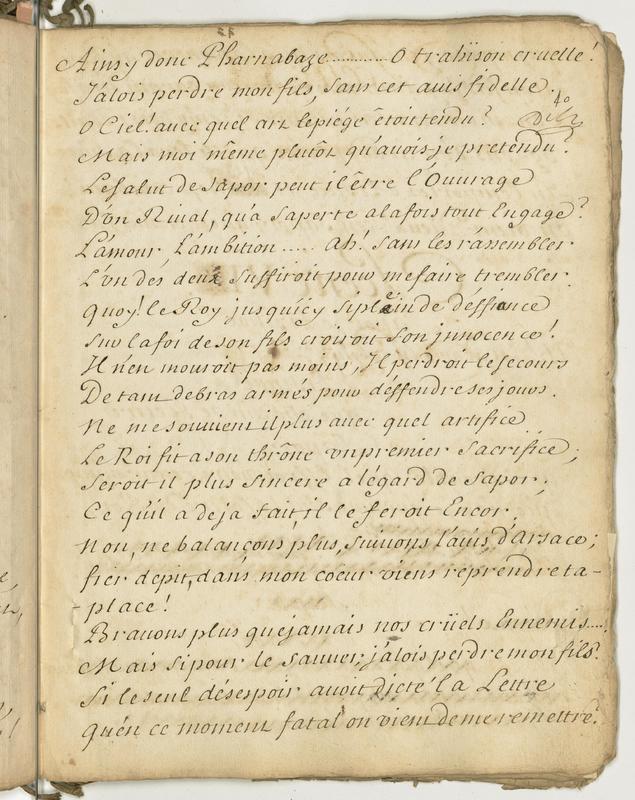 Ainsy donc Pharnabaze............ O trahison cruelle!
J'alois perdre mon fils, sans cet auis fidelle.
O Ciel! auec quel art le piége étoit tendu?
40
Mais moi même plutôt qu'auois-je pretendu?
Le salut de Sapor peut il être l'Ouurage
D'vn Riual, qu'a sa perte a la fois tout Engage?
L'amour L'ambition..... ah! sans les rássembler
L'vn des deux suffiroit pour me faire trembler.
Quoy! le Roy jusqu'icy si plein de déffiance
Sur la foi de son fils croiroit son jnnocence!
Il n'en mouroit pas moins, Il perdroit le secours
De tant de bras armés pour déffendre ses jours.
Ne me souuient il plus auec quel artifice
Le Roi fit a son thrône vn premier Sacrifice;
Seroit il plus sincere a légard de Sapor,
Ce qu'il a deja fait il le feroit Encor,
Non, ne balançons plus, suiuons l'auis d'arsace;
fier dépit, dans mon coeur viens reprendre ta-
-place!
Brauons plus que jamais nos crüels Ennemis....
Mais si pour le sauuer, j'alois perdre mon fils?
Si le seul désespoir auoit dicté la Lettre
Qu'én ce moment fatal on vient de me remettre?